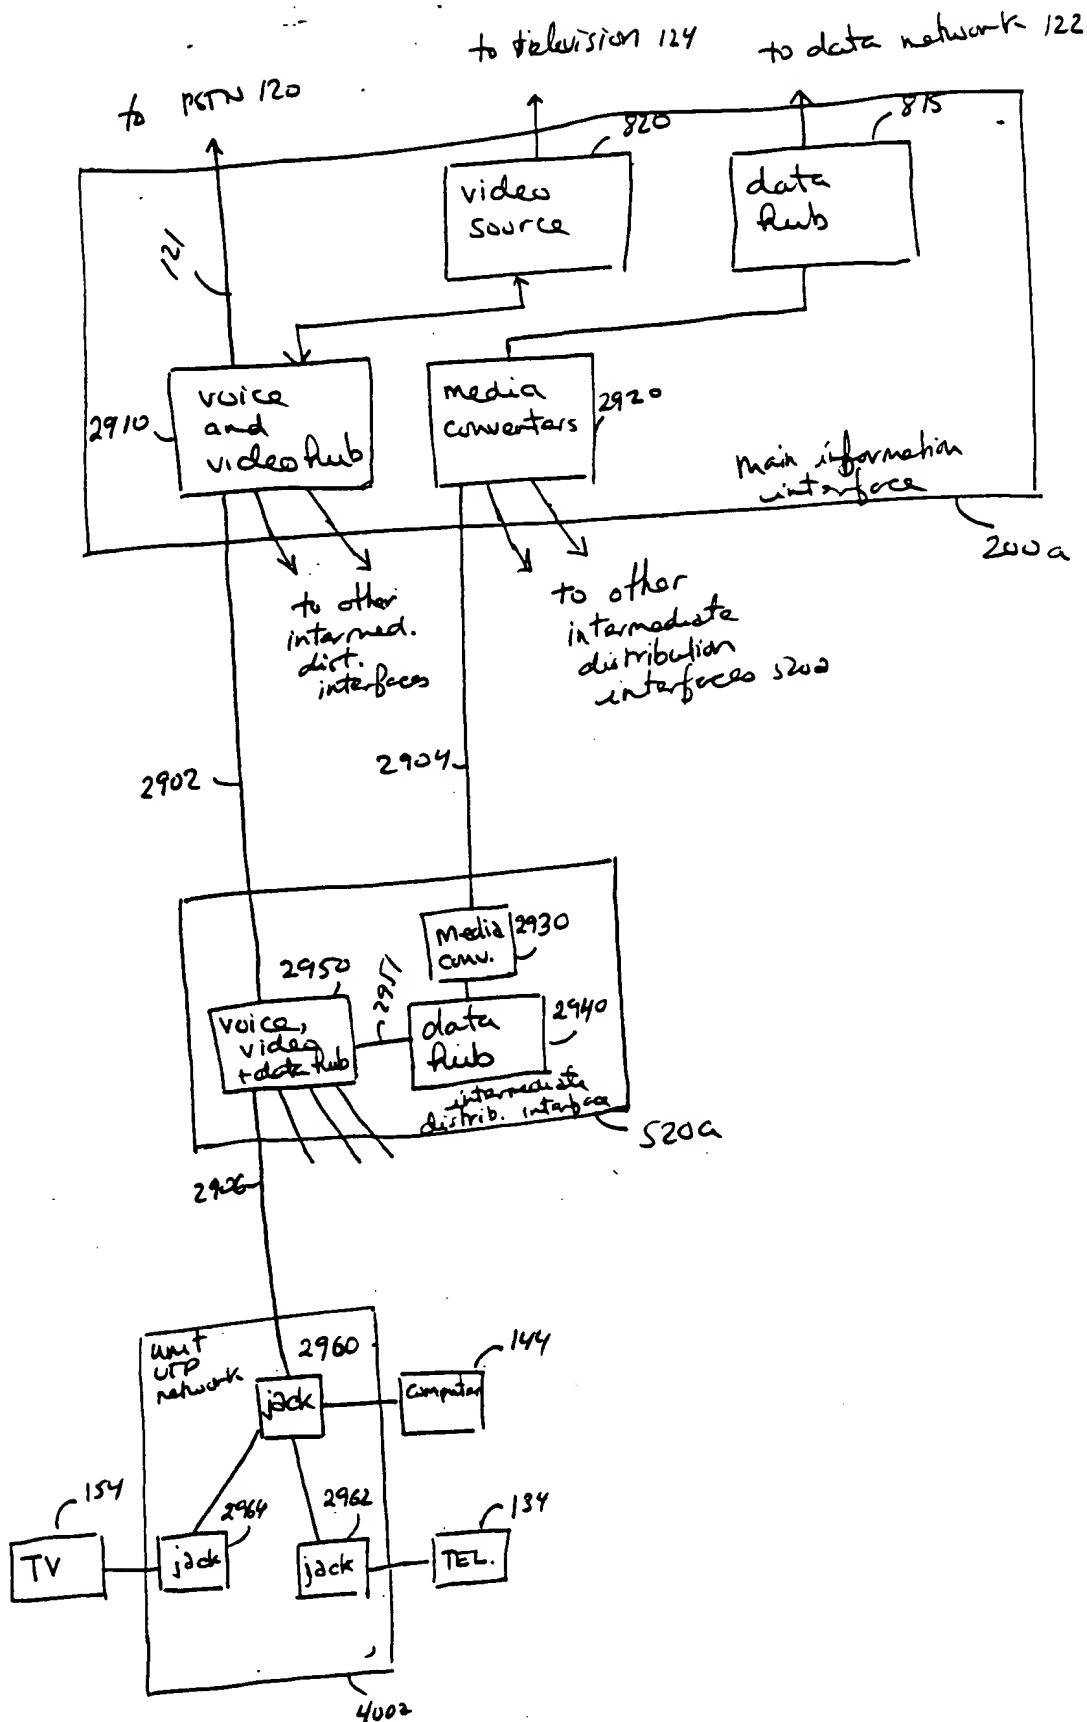 to television 124
to data network 122
to PSTN 120
820
875
video
source
data
hub
121
voice
and
video hub
2910
media
converters
2920
main information
interface
200a
to other
intermed.
dist.
interfaces
to other
intermediate
distribution
interfaces
2902
2904
media
conv.
2930
2950
2951
voice,
video
+ data hub
data
hub
2940
intermediate
distrib. interface
520a
2906
unit
UTP
network
2960
jack
144
computer
154
2964
2962
134
TV
jack
jack
TEL.